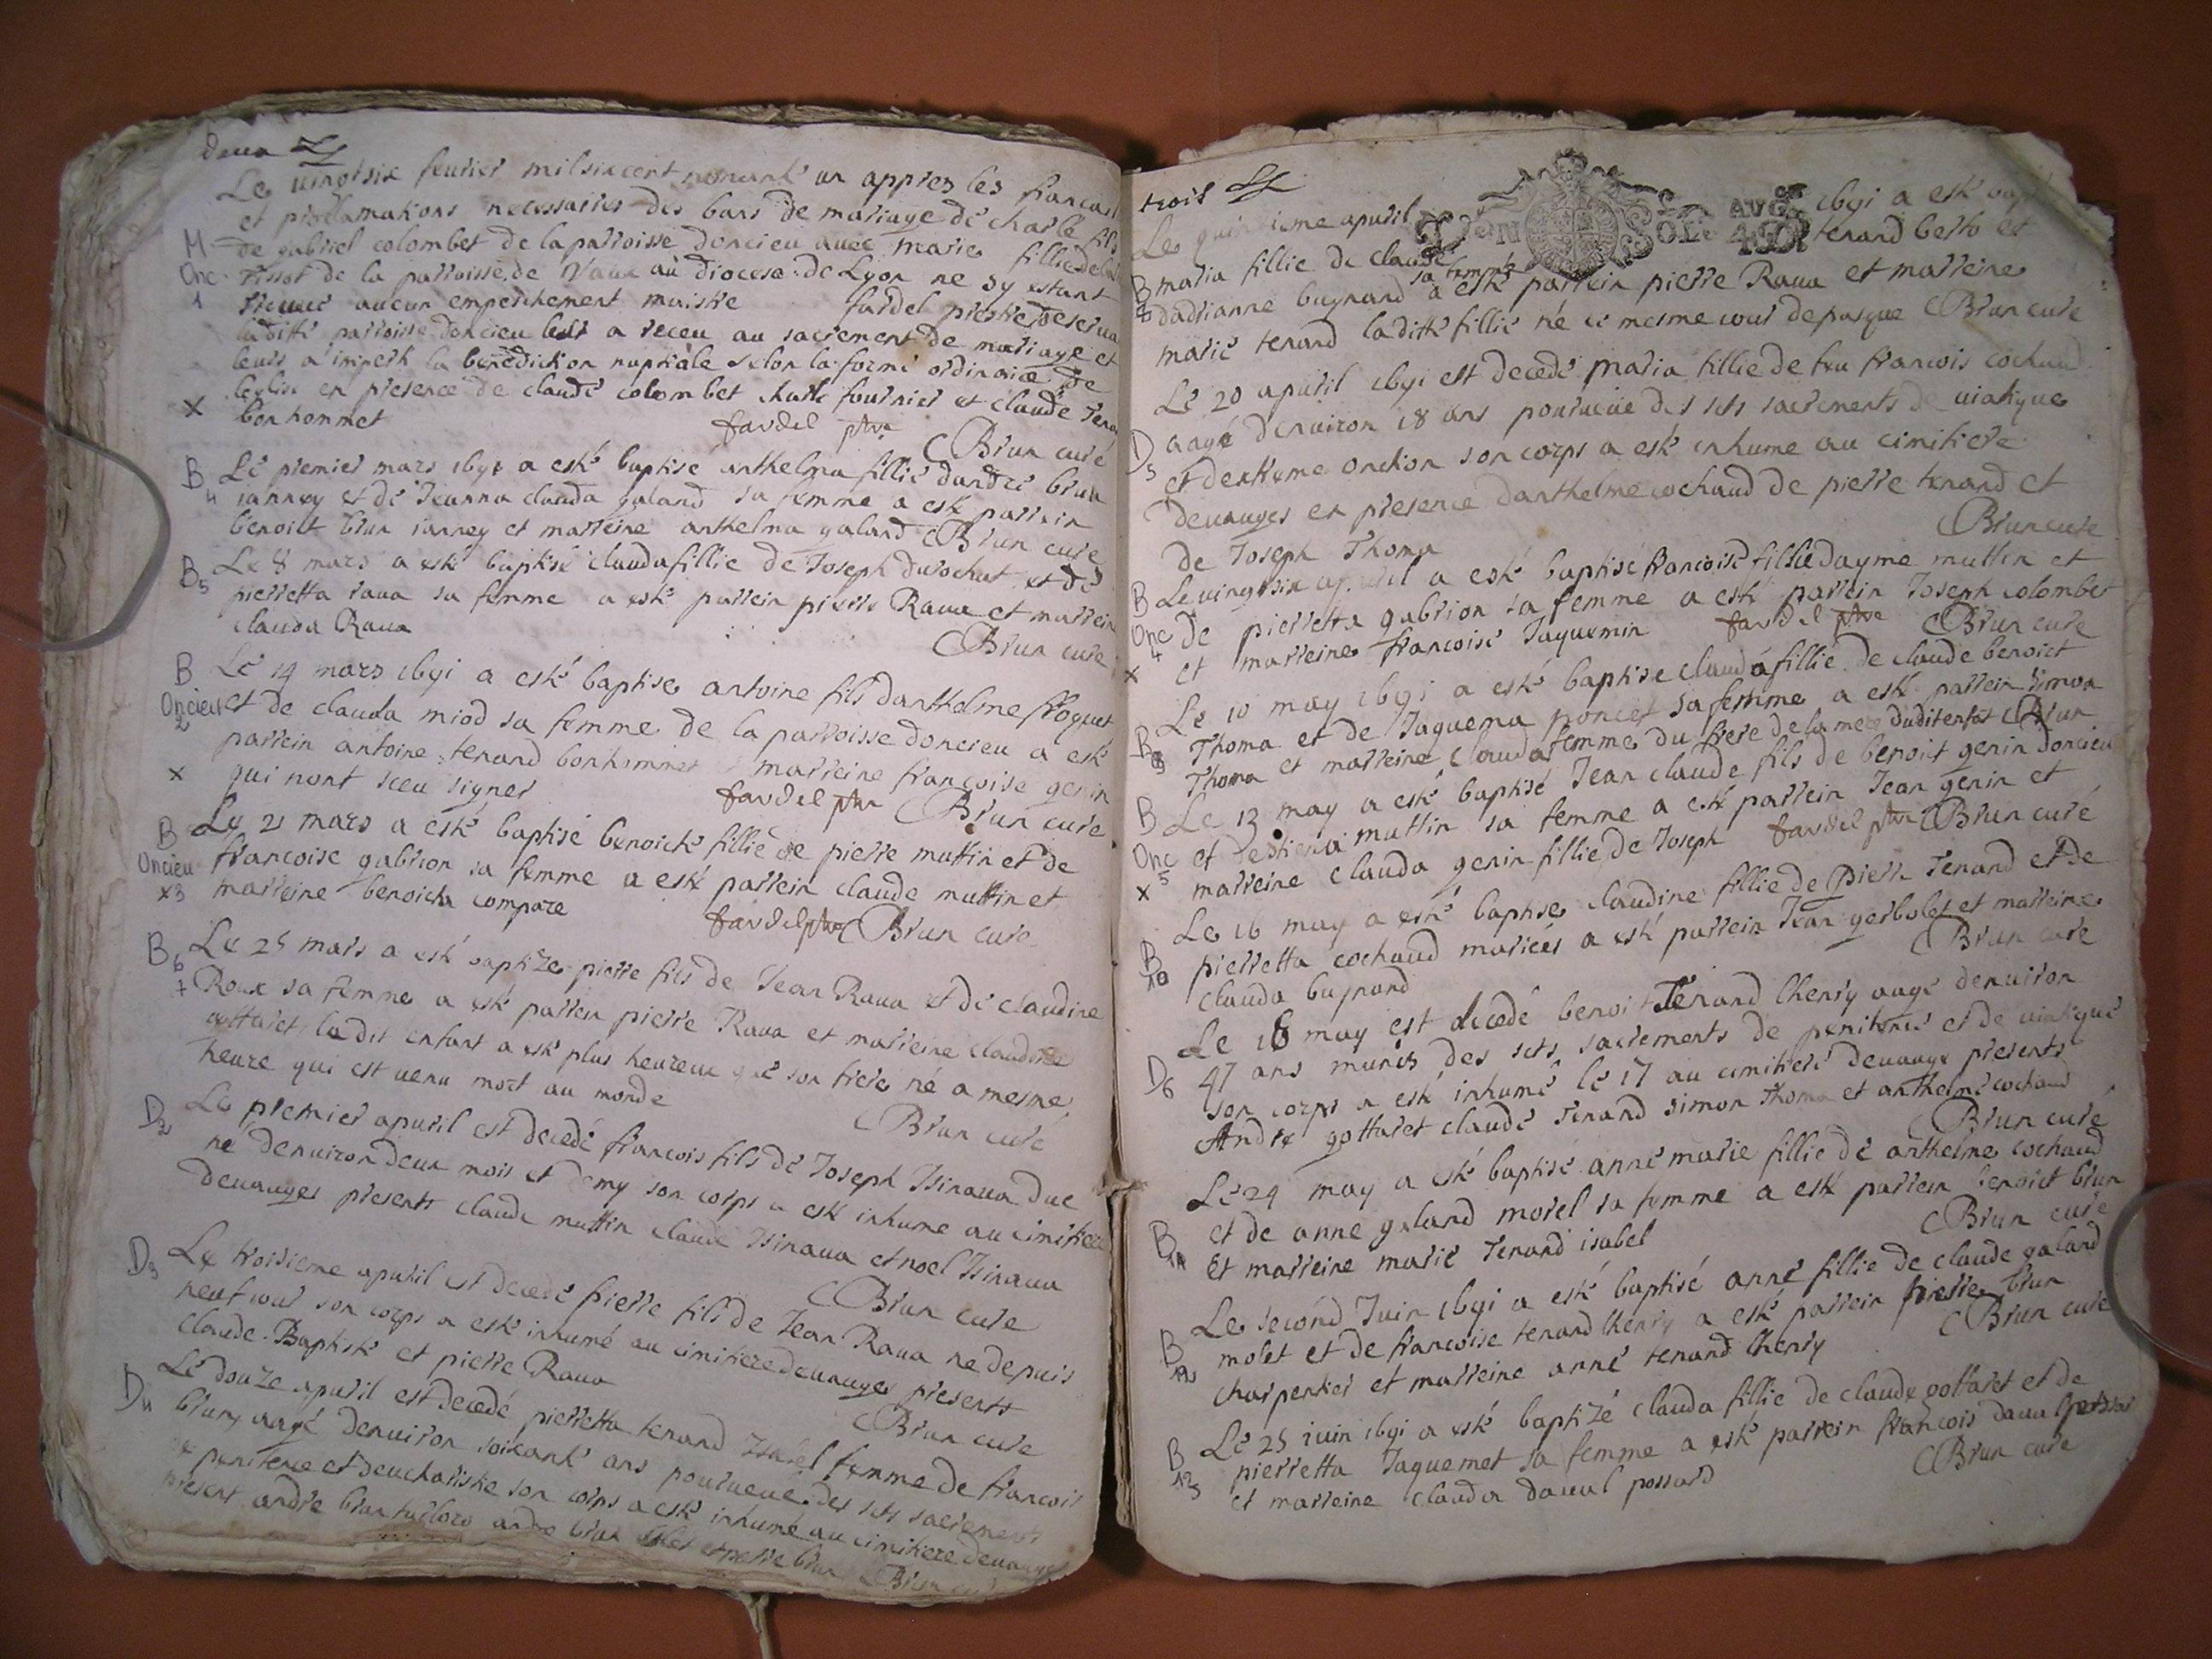 deux
Le vingtsix feurier mil sixcent nonante un appres les francail
et proclamations necessaires des bans de mariage de charle fils
M de gabriel colombet de la parroisse doncieu auec marie fillie de
Onc Tissot de la parroisse de Vaux au diocese de Lyon ne sy estant
1 treuué aucun empeschement maistre fardel prestre deserua
laditte parroisse doncieu les a receu au sacrement de mariage et
leurs a imperti la benediction nuptiale selon la forme ordinaire de
leglise en presence de claude colombet charle fournier et claude Tena
x bonhommet fardel ptre
Brun curé
B Le premier mars 1691 a esté baptisé anthelma fillie dandré brun
4 ianney et de Jeanna clauda galand sa femme a esté parrein
benoict brun ianney et marreine anthelma galand Brun curé
B Le 8 mars a esté baptisé clauda fillie de Joseph durochat et de
5 pierretta raua sa femme a esté parrein pierre Raua et marrein
clauda Raua
Brun curé
B Le 14 mars 1691 a esté baptise antoine fils danthelme froquet
Oncieu et de clauda miod sa femme de la parroisse doncieu a esté
2 parrein antoine tenard bonhommet marreine françoise genin
x qui nont sceu signer fardel ptre Brun curé
B Le 21 mars a esté baptisé benoicte fillie de pierre muttin et de
Oncieu francoise gabrion sa femme a esté parrein claude muttin et
x3 marreine benoicta compare fardel ptre Brun curé
B Le 25 mars a esté baptize pierre fils de Jean Raua et de claudine
6 Roux sa femme a esté parrein pierre Raua et marreine claudine
+ gottaret ladit enfant a esté plus heureux que son frere né a mesme
heure qui est venu mort au monde
Brun curé
D2 Le premier apuril est decedé francois fils de Joseph Isiraua duc
né denuiron deux mois et demy son corps a esté inhume au cimitiere
deuauges presents claude muttin claude Isiraua et noel Isiraua
Brun curé
D3 Le troisieme apuril est decedé pierre fils de Jean Raua ne depuis
neuf iour son corps a esté inhumé au cimitiere deuauges presents
claude Baptiste et pierre Raua
Brun curé
D4 Le douze apuril est decedé pierretta tenard Isabel femme de francois
brun aagé denuiron soixante ans pourueue des sts sacrements
de penitence et deucharistie son corps a esté inhumé au cimitiere deuauges
present andre brun andre brun et pierre brun Brun curé
trois
Le quinzieme apuril 1691 a esté bap
GEN SOL AUG 4D
B maria fillie de claude tenard berto et
dadrianne bugnand sa femme a esté parrein pierre Raua et marreine
marie tenard laditte fillie né ce mesme iour de pasque Brun curé
Le 20 apuril 1691 est decedé maria fillie de feu francois cochaud
D5 aagé denuiron 18 ans pourueüe des sts sacrements de uiatique
et dextreme onction son corps a esté inhume au cimitiere
deuauges en presence danthelme cochaud de pierre tenard et
de Joseph Thoma
Brun curé
B Le uingtsix apuril a esté baptisé francoise fillie dayme muttin et
Onc de pierretta gabrion sa femme a esté parrein Joseph colombet
4
x et marreine francoise Jaquemin fardel ptre Brun curé
Le 10 may 1691 a esté baptise clauda fillie de claude benoict
B9 Thoma et de Jaquema poncet sa femme a esté parrein Simon
Thoma et marreine clauda femme du frere de la mere dudit enfat Brun
B Le 13 may a esté baptisé Jean claude fils de benoict genin doncieu
Onc et muttin sa femme a esté parrein Jean genin et
5
x marreine clauda genin fillie de Joseph fardel ptre Brun curé
Le 16 may a esté baptise claudine fillie de pierre Tenard et de
B10 pierretta cochaud mariées a esté parrein Jean gerbolet et marreine
clauda bugnand
Brun curé
Le 16 may est decedé benoit Tenard thenry aagé denuiron
D6 47 ans munis des sts sacrements de penitence et de uiatique
son corps a esté inhumé le 17 au cimitiere deuauge presents
Andre gottaret claude Tenard simon Thoma et anthelme cochaud
Brun curé
Le 24 may a esté baptisé anne marie fillie de anthelme cochaud
B11 et de anne galand morel sa femme a esté parrein benoict brun
et marreine marie Tenard isabel
Brun curé
B12 Le second Juin 1691 a esté baptisé anne fillie de claude galand
molet et de francoise tenard thenry a esté parrein pierre brun
charpentier et marreine anne tenard thenry
Brun curé
B13 Le 25 iuin 1691 a esté baptizé clauda fillie de claude gottaret et de
pierretta Jaquemet sa femme a esté parrein francois daual possar
et marreine clauda daual possard
Brun curé